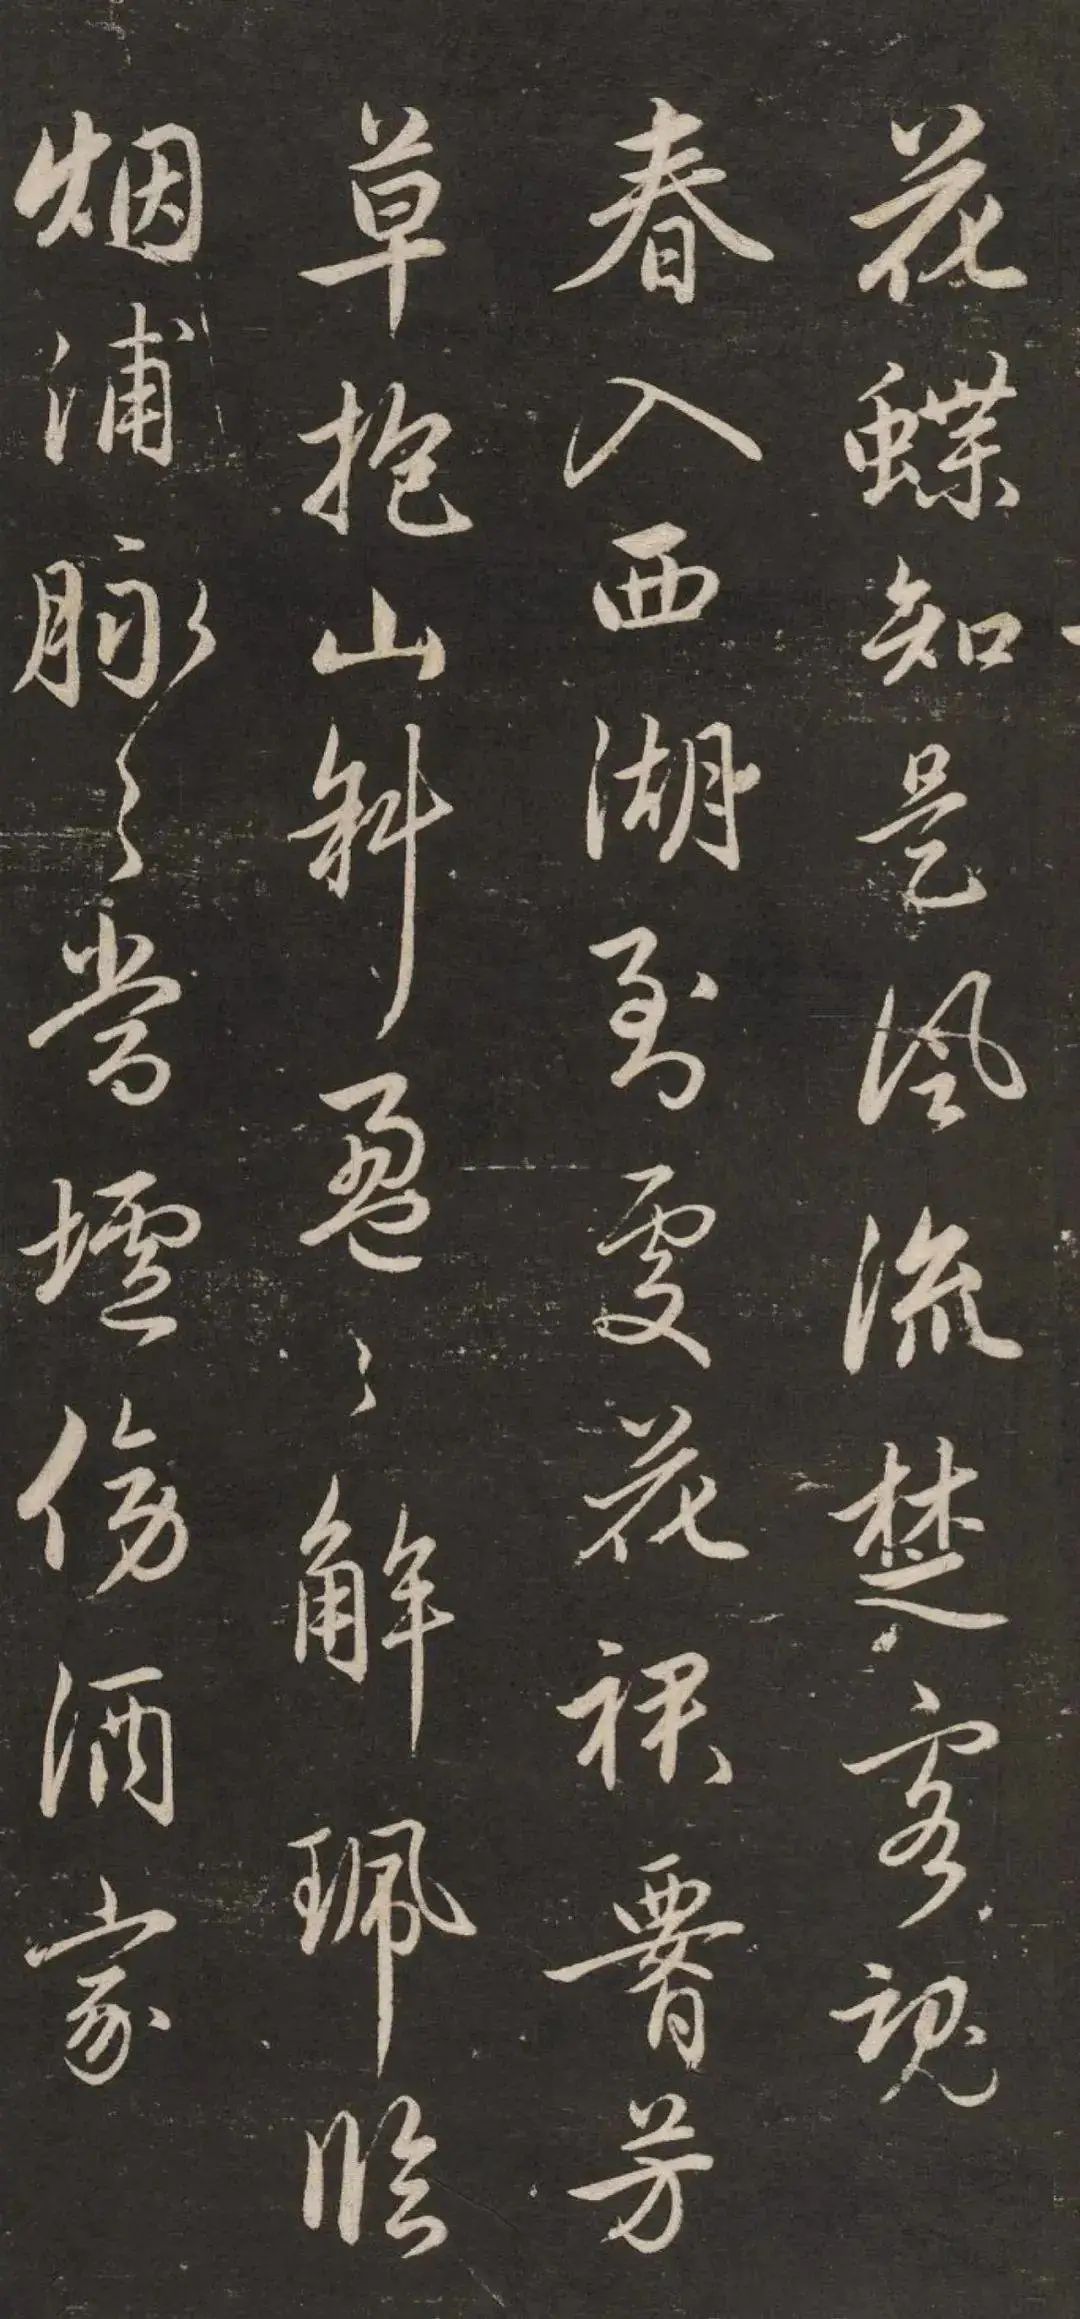 花蝶知是風流楚客魂
春入西湖到處花裙腰芳
草抱山斜盈〻解珮臨
烟浦脉〻當壚傍酒家